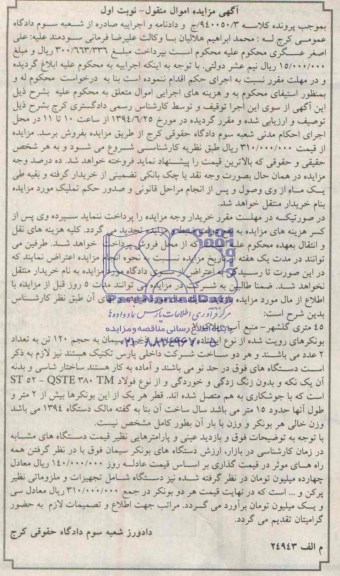 آگهی مزایده اموال منقول- نوبت اول
بموجب پرونده کلاسه ۹۴۰۰۵۰/۳ج و دادنامه و اجراییه صادره از شعبه سوم دادگاه
عمومی کرج له : محمد ابراهیم هلالیان با وکالت علیرضا فرمانی سودمند علیه: علی
اصغر عسگری محکوم علیه محکوم است بپرداخت مبلغ ۳۰۰/۶۶۳/۳۳۶ ریال و مبلغ
۱۵/۰۰۰/۰۰۰ ریال نیم عشر دولتی. با توجه به اینکه اجراییه به محکوم علیه ابلاغ گردیده
و در مهلت مقرر نسبت به اجرای حکم اقدام ننموده است بنا به درخواست محکوم له و
بمنظور استیفای محکوم به و هزینه های اجرایی اموال متعلق به محکوم علیه بشرح ذیل
این آگهی از سوی این اجرا توقیف و توسط کارشناس رسمی دادگستری کرج بشرح ذیل
توصیف و ارزیابی شده و مقرر گردیده در مورخ ۱۳۹۴/۶/۲۵ از ساعت ۱۰ تا ۱۱ در محل
اجرای احکام مدنی شعبه سوم دادگاه حقوقی کرج از طریق مزایده بفروش برسد. مزایده
از قیمت ۳۱۰/۰۰۰/۰۰۰ ریال طبق نظریه کارشناسی شروع می شود و به هر شخص
حقیقی و حقوقی که بالاترین قیمت را پیشنهاد نماید فروخته خواهد شد. ده درصد وجه
مزایده در همان حال بصورت وجه نقد یا چک بانکی تضمینی از خریدار گرفته و بقیه طی
یک ماه از وی وصول و پس از انجام مراحل قانونی و صدور حکم تملیک مورد مزایده
بنام خریدار منتقل خواهد شد.
در صورتیکه در مهلت مقرر خریدار وجه مزایده را پرداخت ننماید سپرده وی پس از
کسر هزینه های مزایده به تجدید می گردد. کلیه هزینه های نقل
و انتقال بعهده محکوم که از محل فروش خواهد شد. طرفین می
توانند در مدت یک هفته از تاریخ مزایده نسبت به نحوه انجام مزایده اعتراض نمایند که
در این صورت تا دادگاه مورد مزایده به نام خریدار منتقل
نخواهد شد. ضمنا طالبین به شرکت در مزایده می توانند مدت ۵ روز قبل از مزایده با
اطلاع از مال مورد مزایده آن طبق نظر کارشناس
بدین شرح است:
ParsNamadData
مرکز فرآوری اطلاعات پارس نماد داده ها
پایگاه اطلاع رسانی مناقصه و مزایده
۰۲۱-۸۸۳۴۹۶۷۰-۵
۴۵ متری گلشهر - منبع آب
بونکرهای رویت شده از نوع سیمان به حجم ۱۲۰ تن به تعداد
۲ عدد می باشند و هر دو ساخت شرکت داخلی پارس تکنیک هستند نیز لازم به ذکر
است دستگاه های فوق در حد نو می باشند و آماده به کار هستند ساختار شاسی و بدنه
آن یک تکه و بدون زنگ زدگی و خوردگی و از نوع فولاد ST ۵۲ – QSTE ۳۸۰ TM
است که با جوشکاری به هم متصل شده اند. قطر هر یک از این بونکرها بیش از ۲ متر و
طول آنها حدود ۱۵ متر می باشد سال ساخت آن بنا به گفته مالک دستگاه ۱۳۹۴ می باشد
وزن خالی هر بونکر و وزن با بار آن بطور کامل مشخص نیست.
با توجه به توضیحات فوق و بازدید عینی و پارامترهایی نظیر قیمت دستگاه های مشابه
در زمان کارشناسی در بازار، ارزش دستگاه های بونکر سیمان فوق با در نظر گرفتن همه
راه های موثر در قیمت گذاری بر اساس قیمت عادله روز ۱۴۰/۰۰۰/۰۰۰ ریال معادل
چهارده میلیون تومان در نظر گرفته شده نیز دستگاه شامل تجهیزات و ملزوماتی نظیر
پرکن و ... است که در نهایت قیمت هر دو بونکر در جمع ۳۱۰/۰۰۰/۰۰۰ ریال معادل سی
و یک میلیون تومان برآورد می گردد. مراتب جهت اطلاع و تصمیمات لازم به حضور
گرامیتان تقدیم می گردد.
دادورز شعبه سوم دادگاه حقوقی کرج
م الف ۲۴۹۴۳